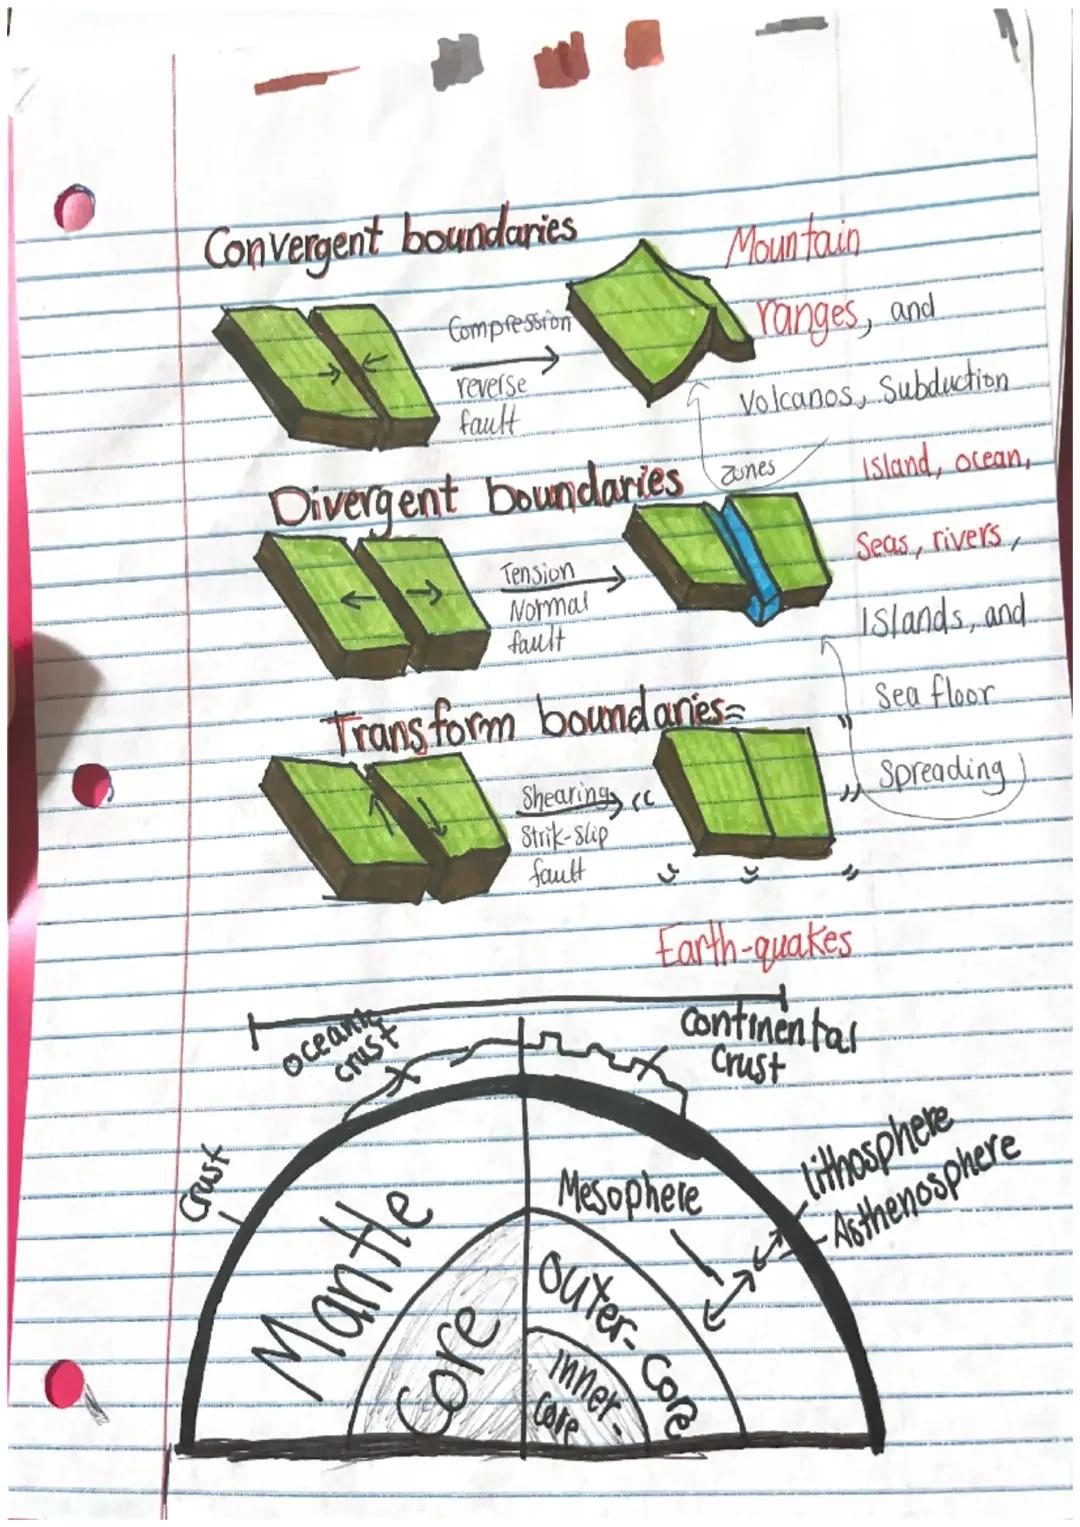 Convergent boundaries
Mountain
ranges, and
Compression
reverse
fault
Volcanos, Subduction
zones
Divergent boundaries
Island, ocean,
Seas, rivers,
Tension
Normal
fault
Islands, and
Sea floor
Spreading
Transform boundaries
Shearing
Strik-slip
fault
Earth-quakes
oceanic
crust
continental
Crust
Crust
Mantle
Core
Mesophere
Outer-Core
inner-
core
lithosphere
Asthenosphere